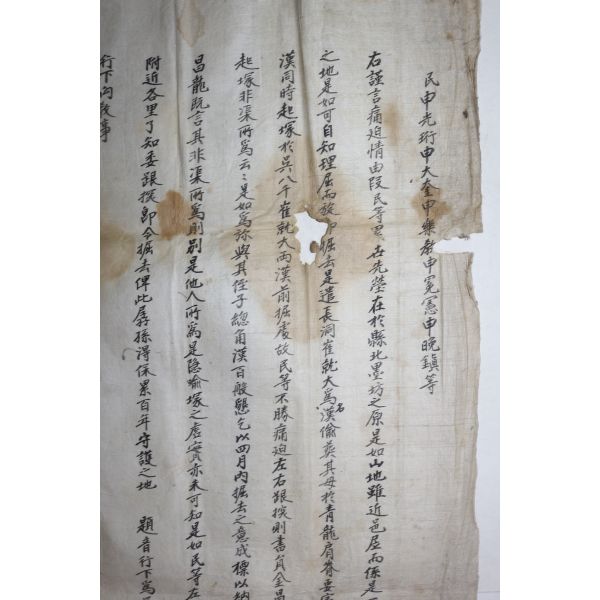 民申光珩申大奎申樂敎申冕憲申晩鎭等
右謹言痛迫情由段民等累世先塋在於縣北墨坊之原是如山地雖近邑居而係是
之地是如可自知理屈而旋即掘去是遣長洞崔就大爲名漢偸葬其母於靑龍肩脊要害
漢同時起塚於吳八千崔就大兩漢前掘處故民等不勝痛迫左右跟探則書員全昌
起塚非渠所爲云云是如爲旀與其侄子總角漢百般懇乞以四月內掘去之意成標以納
昌龍旣言其非渠所爲則別是他人所爲是隐喩塚之虛實亦未可知是如民等左
附近各里了知委跟探即令掘去俾此孱孫得保累百年守護之地 題音行下爲
行下向敎事